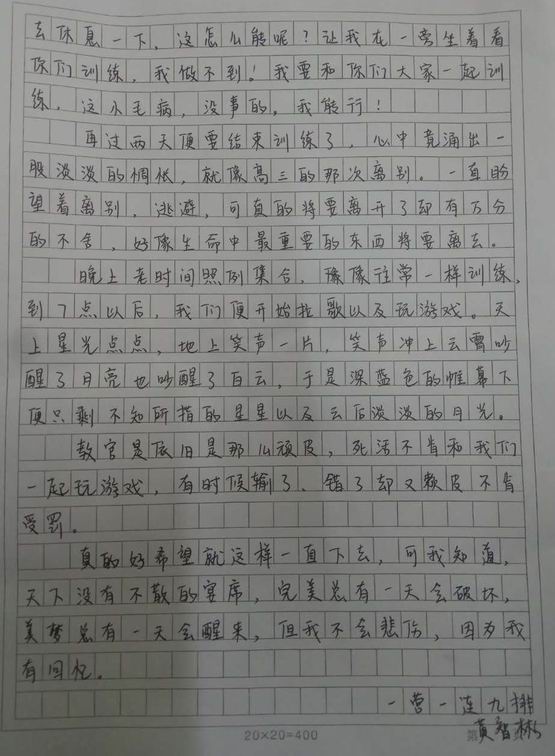 去休息一下，这怎么能呢？让我在一旁坐着看
你们训练，我做不到！我要和你们大家一起训
练，这小毛病，没事的，我能行！
再过两天便要结束训练了，心中竟涌出一
股淡淡的惆怅，就像高三的那次离别。一直盼
望着离别，逃避，可真的将要离开了却有万分
的不舍，好像生命中最重要的东西将要离去。
晚上老时间照例集合，像往常一样训练，
到7点以后，我们便开始拉歌以及玩游戏。天
上星光点点，地上笑声一片，笑声冲上云霄吵
醒了月亮也吵醒了白云，于是深蓝色的帷幕下
便只剩不知所措的星星以及云后淡淡的月光。
教官是依旧是那么顽皮，死活不肯和我们
一起玩游戏，有时候输了、错了却又赖皮不肯
受罚。
真的好希望就这样一直下去，可我知道，
天下没有不散的宴席，完美总有一天会破坏，
美梦总有一天会醒来，但我不会悲伤，因为我
有回忆。
一营一连九排
黄智彬
20×20=400
第